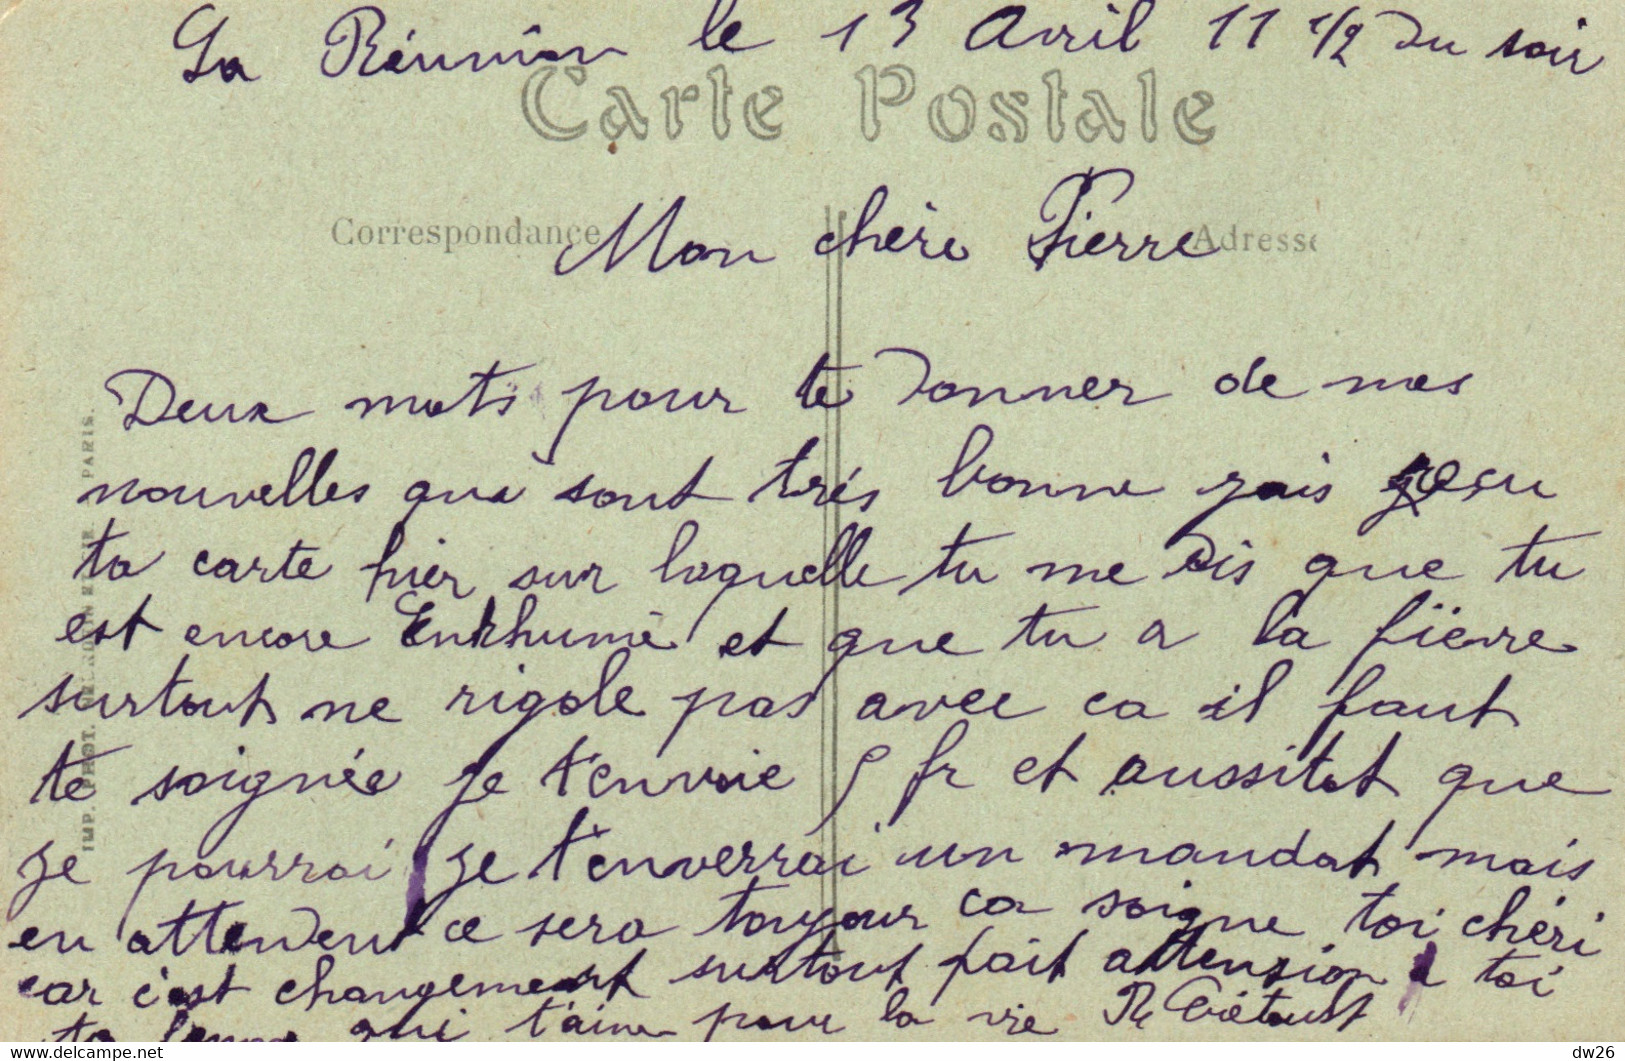 La Réunion le 13 Avril 11 1/2 du soir
Carte Postale
Correspondance
Adresse
Mon chère Pierre
Deux mots pour te donner de mes
nouvelles qui sont très bonne jais reçu
ta carte hier sur laquelle tu me dis que tu
est encore Enrhumé et que tu a la fièvre
surtout ne rigole pas avec ca il faut
te soignée je t'envoie 5 fr et aussitot que
je pourrai je t'enverrai un mandat mais
en attendent ce sera toujour ca soigne toi chéri
car c'est changement surtout fait attension a toi
ta femme qui t'aime pour la vie
IMP. PHOT. PARIS.
dw26
www.delcampe.net